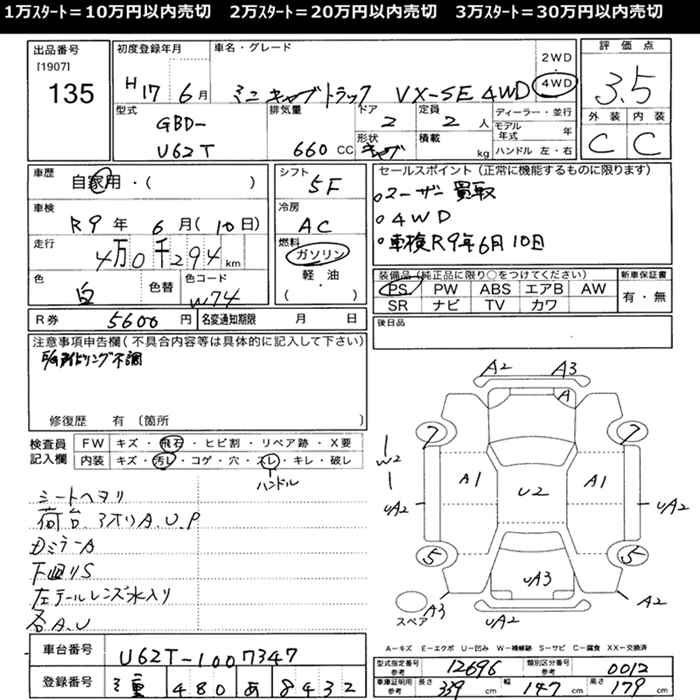 1万ｽﾀｰﾄ＝10万円以内売切　2万ｽﾀｰﾄ＝20万円以内売切　3万ｽﾀｰﾄ＝30万円以内売切
出品番号
[1907]
135
初度登録年月
H17 6月
車名・グレード
ミニキャブトラック VX-SE 4WD
2WD
・
4WD
評価点
3.5
外装 内装
C C
型式
GBD-
U62T
排気量
660 CC
ドア
2
定員
2 人
形状
キャブ
積載
kg
ディーラー・並行
モデル年式 年
ハンドル 左・右
車歴
自家用・( )
車検
R9年 6月(10日)
走行
4万0千294km
色
白
色替
色コード
W74
シフト
5F
冷房
AC
燃料
ガソリン
軽・油
( )
セールスポイント(正常に機能するものに限ります)
○ユーザー買取
○4WD
○車検R9年6月10日
装備品(純正品に限り○をつけてください)
PS PW ABS エアB AW
SR ナビ TV カワ
新車保証書
有・無
R券 5600円 名変通知期限 月 日
後日品
注意事項申告欄(不具合内容等は具体的に記入して下さい)
E/gアイドリング不調
修復歴 有 〔箇所
検査員
記入欄
FW キズ・飛石・ヒビ割・リペア跡・X要
内装 キズ・汚レ・コゲ・穴・スレ・キレ・破レ
ハンドル
シートヘタリ
荷台、アオリA.U.P
DミラーA
下廻りS
左テールレンズ水入り
各A.U
A2 A3
A
7 7
W2
A1 U2 A1
UA2 UA2
5 5
UA3
A3 A2
UA2
スペア
A－キズ E－エクボ U－凹み W－補修跡 S－サビ C－腐食 XX－交換済
車台番号
U62T-1007347
登録番号
三重 480 あ 8432
型式指定番号
参考
12696
類別区分番号
参考
0012
車庫証明用
参考
長さ 339 cm 幅 147 cm 高さ 179 cm